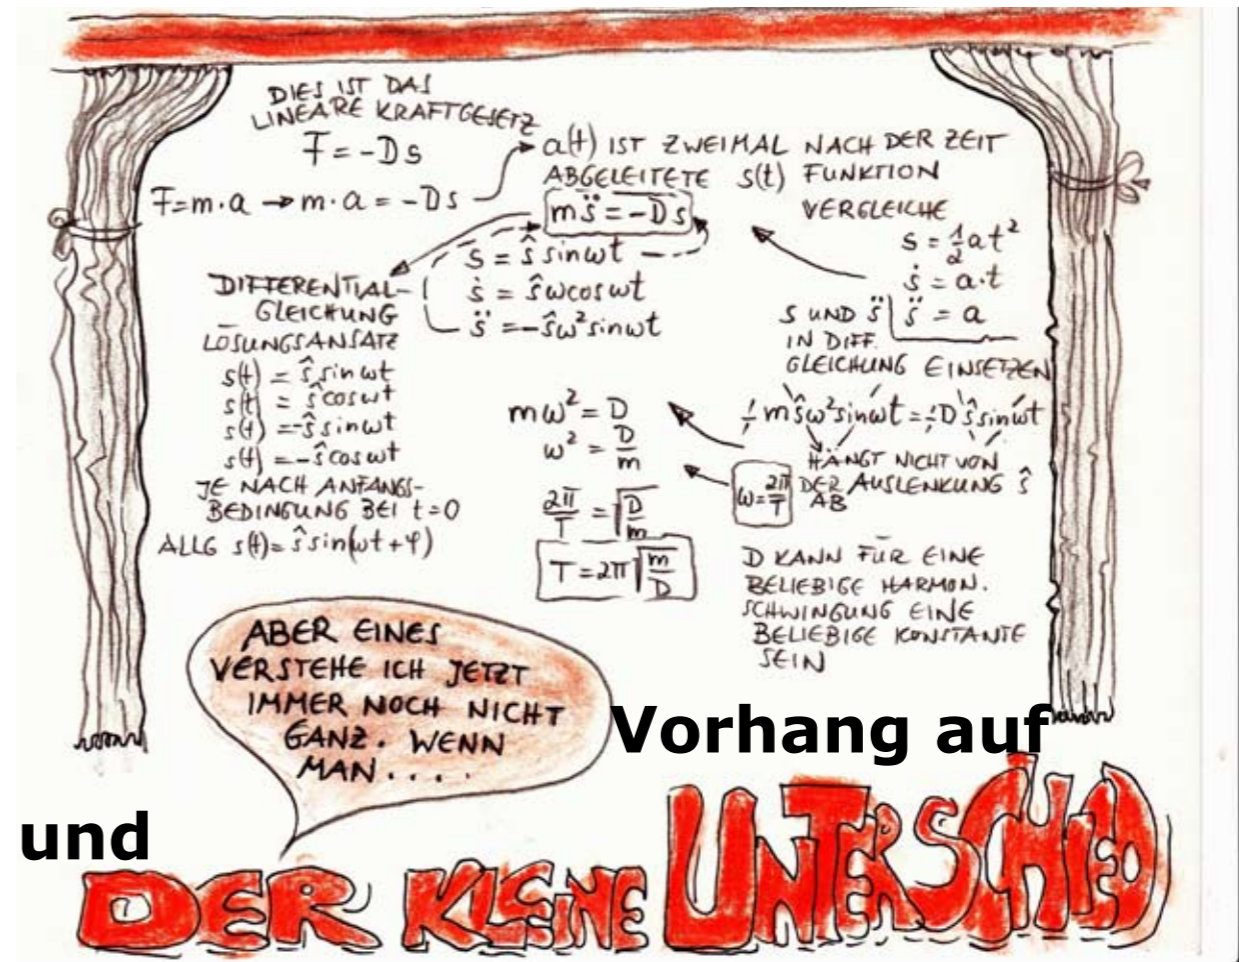 DIES IST DAS
LINEARE KRAFTGESETZ
F = -Ds
F=m·a → m·a = -Ds
a(t) IST ZWEIMAL NACH DER ZEIT
ABGELEITETE s(t) FUNKTION
ms̈ = -Ds
VERGLEICHE
s = ½at²
ṡ = a·t
s̈ = a
s = ŝ sinωt
ṡ = ŝωcosωt
s̈ = -ŝω²sinωt
DIFFERENTIAL-
GLEICHUNG
LÖSUNGSANSATZ
s(t) = ŝ sinωt
s(t) = ŝ cosωt
s(t) = -ŝ sinωt
s(t) = -ŝ cosωt
JE NACH ANFANGS-
BEDINGUNG BEI t=0
ALLG s(t)= ŝ sin(ωt+φ)
S UND S̈
IN DIFF.
GLEICHUNG EINSETZEN
-mŝω²sinωt = -Dŝsinωt
HÄNGT NICHT VON
DER AUSLENKUNG ŝ
AB
mω² = D
ω² = D/m
ω = 2π/T
2π/T = √(D/m)
T = 2π√(m/D)
D KANN FÜR EINE
BELIEBIGE HARMON.
SCHWINGUNG EINE
BELIEBIGE KONSTANTE
SEIN
ABER EINES
VERSTEHE ICH JETZT
IMMER NOCH NICHT
GANZ. WENN
MAN....
Vorhang auf
und
DER KLEINE UNTERSCHIED